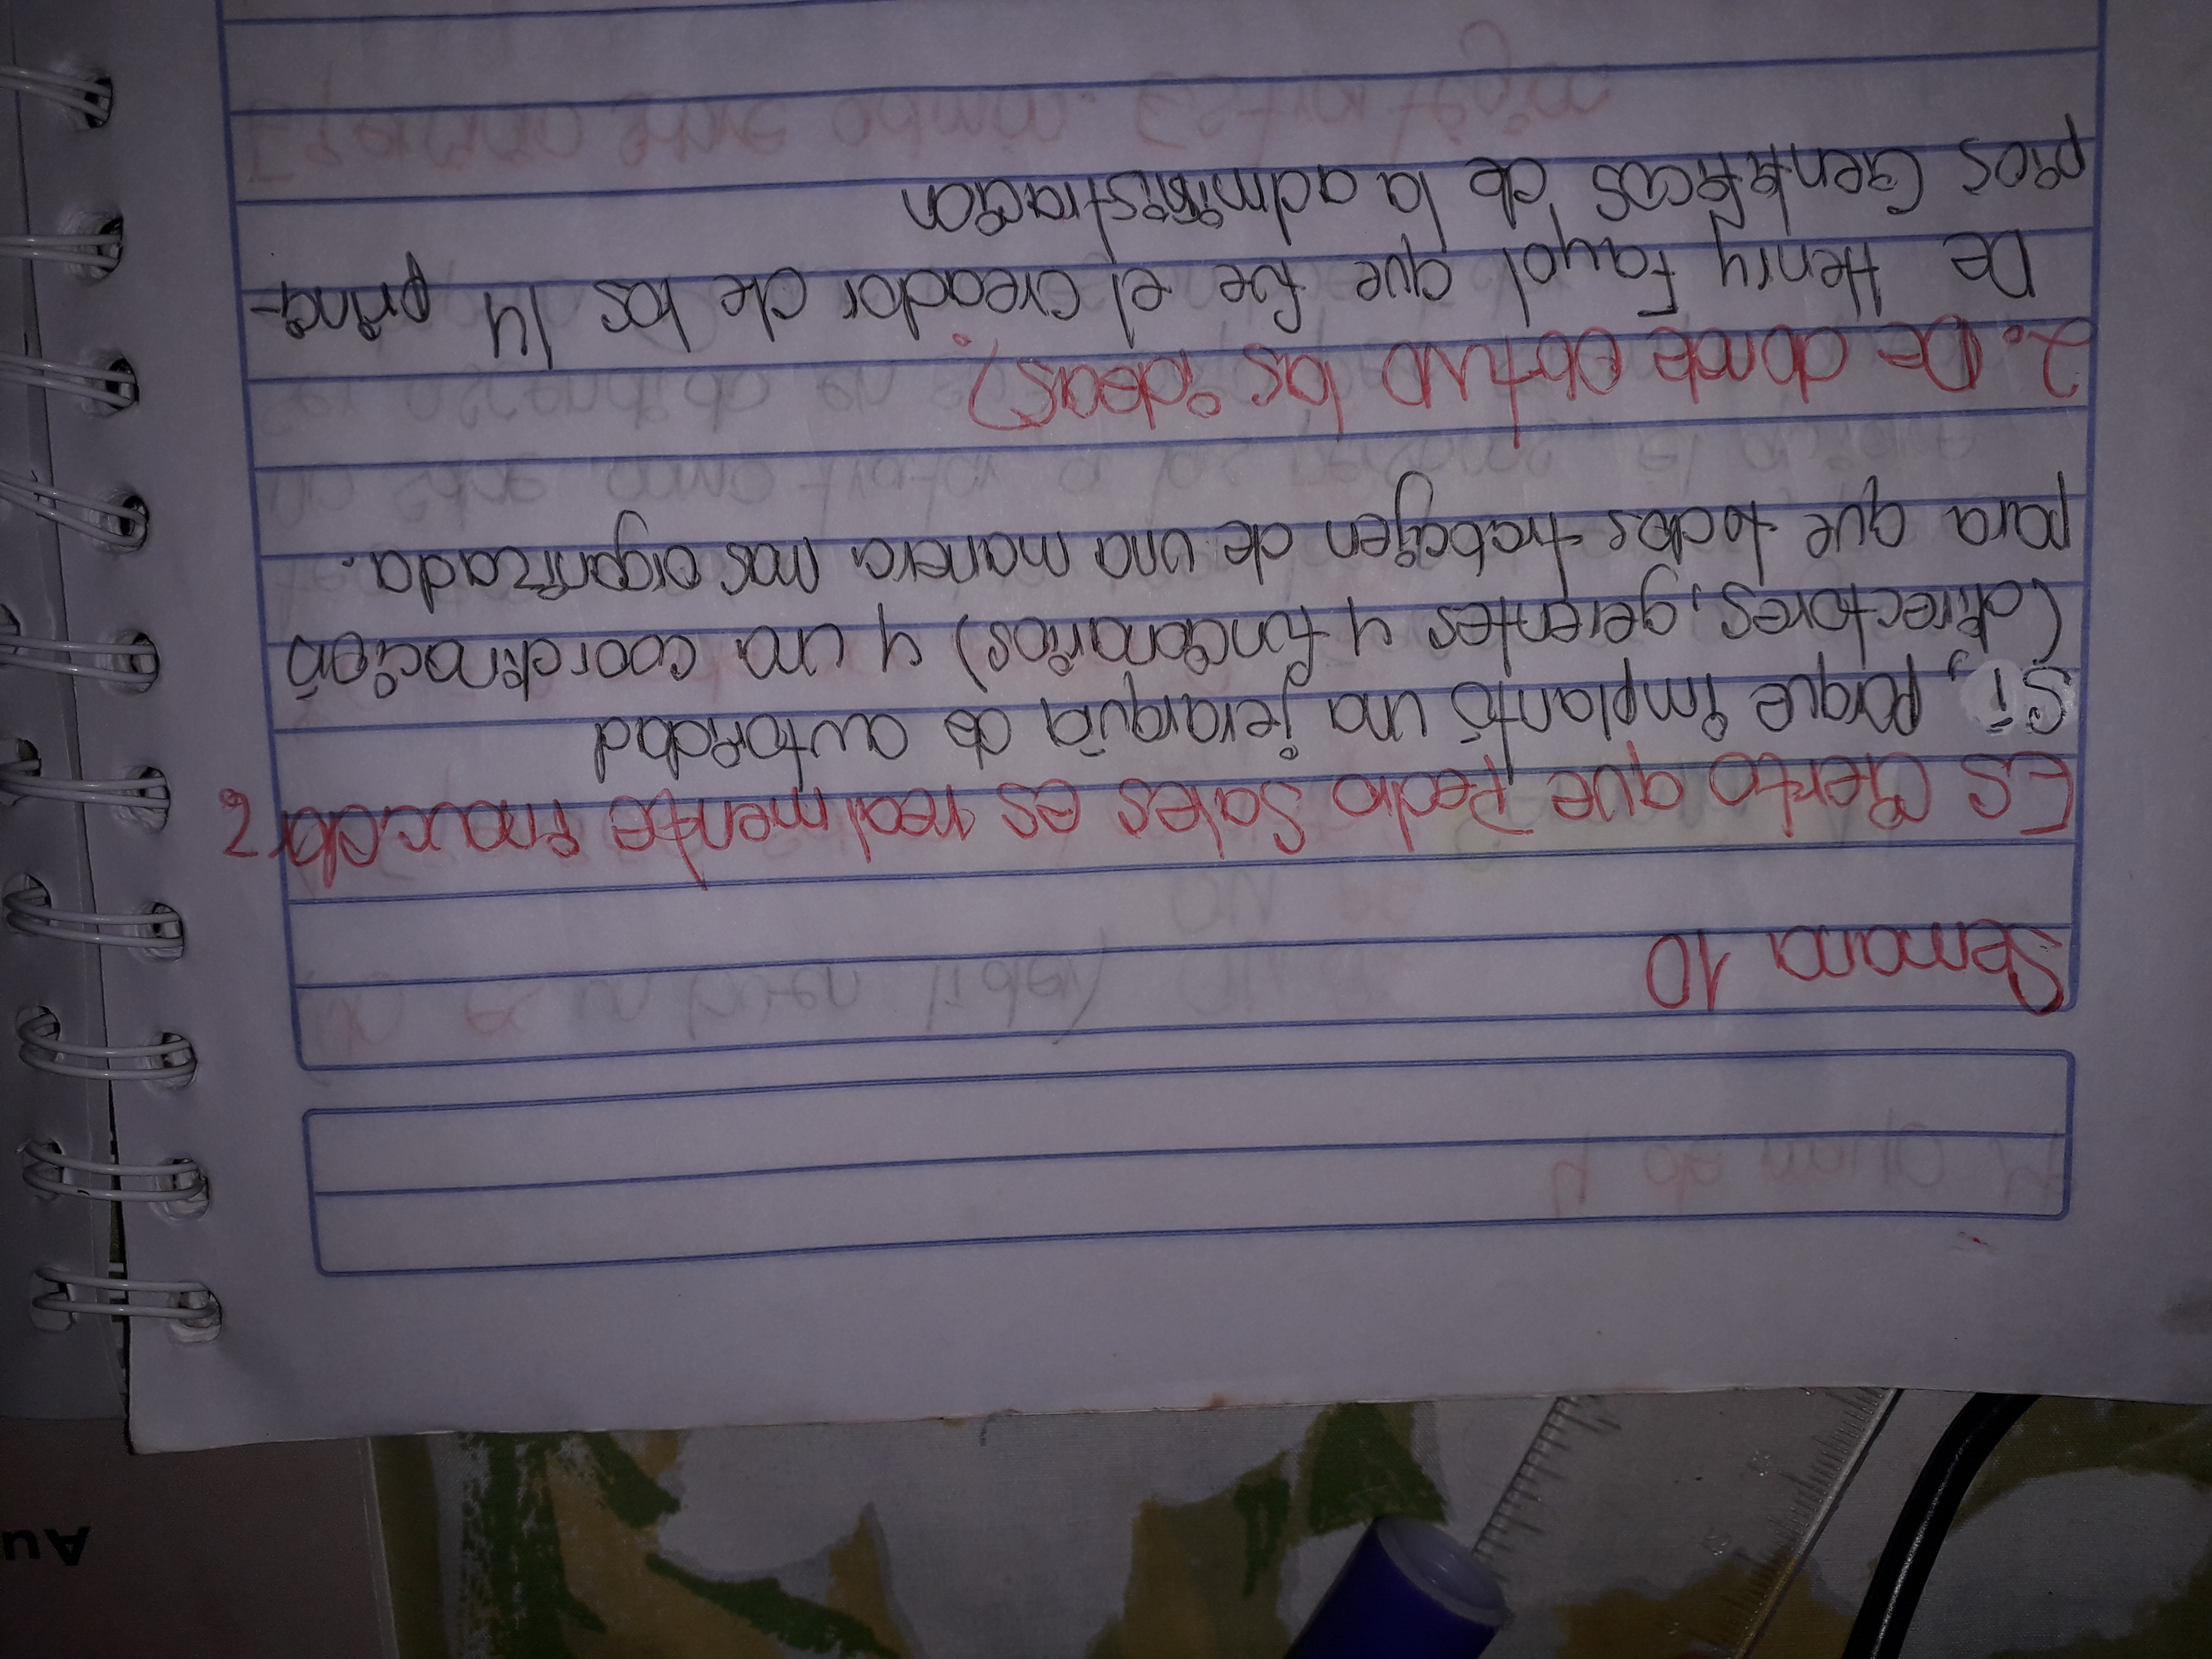 Semana 10
Es cierto que Pedro Sales es realmente innovador?
Si, porque implantó una jerarquía de autoridad
(directores, gerentes y funcionarios) y una coordinacion
para que todos trabajen de una manera mas organizada.
2. De donde obtuvo las ideas?
De Henry Fayol que fue el creador de los 14 princi-
pios cientificos de la administracion
Au